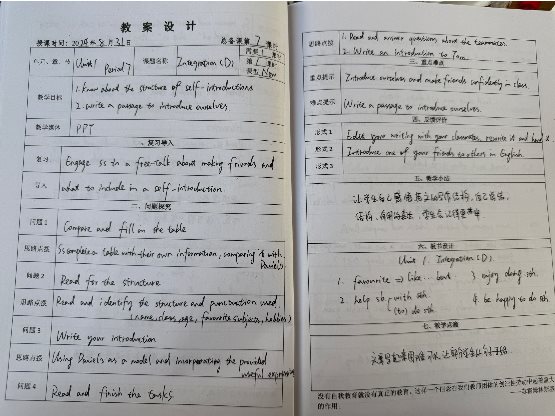 教案设计
授课时间：2024年8月31日 总备课第7课时
单元、章、节 Unit 1 Period 7 课题名称 Integration (D)
课型 New
教学目标 1. Know about the structure of self-introductions
2. write a passage to introduce ourselves.
教学媒体 PPT
一、复习导入
复习 Engage Ss in a free-talk about making friends and
导入 what to include in a self-introduction
二、问题探究
问题1 Compare and fill in the table
思路点拨 Ss complete a table with their own information, comparing it with Daniel's
问题2 Read for the structure
思路点拨 Read and identify the structure and punctuation used
(name, class, age, favourite subjects, hobbies)
问题3 Write your introduction
思路点拨 Using Daniel's as a model and incorporating the provided
useful expressions
问题4 Read and finish the tasks
思路点拨 1. Read and answer questions about the teammates.
2. Write an introduction to
三、重点难点
重点提示 Introduce ourselves and make friends confidently in class.
难点提示 Write a passage to introduce ourselves.
四、反馈评价
形式1 Edit your writing with your classmates, rewrite it and hand it
形式2 Introduce one of your friends to others in English.
形式3
五、教学小结
让学生自己 作文的写作结构，自己总结，
结构，
六、板书设计
Unit 1. Integration (D)
1. favourite => like... best 3 enjoy doing sth.
2. help sb. with sth. 4. be happy to do sth
(to) do sth
七、教学点滴
没有自我教育就没有真正的教育。这样一个信念在我们教师团体的创造性劳动中起着重大
的作用